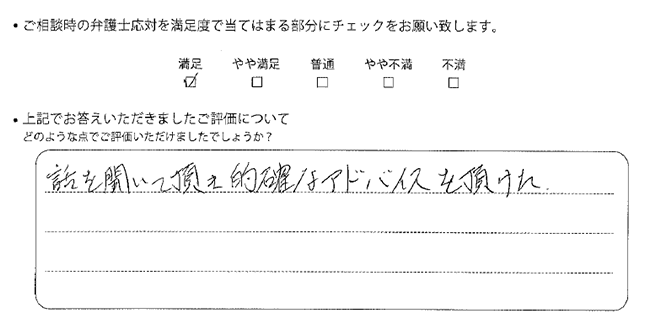 ・ご相談時の弁護士応対を満足度で当てはまる部分にチェックをお願い致します。
満足 やや満足 普通 やや不満 不満
☑ □ □ □ □
・上記でお答えいただきましたご評価について
どのような点でご評価いただけましたでしょうか？
話を聞いて頂き的確なアドバイスを頂けた.